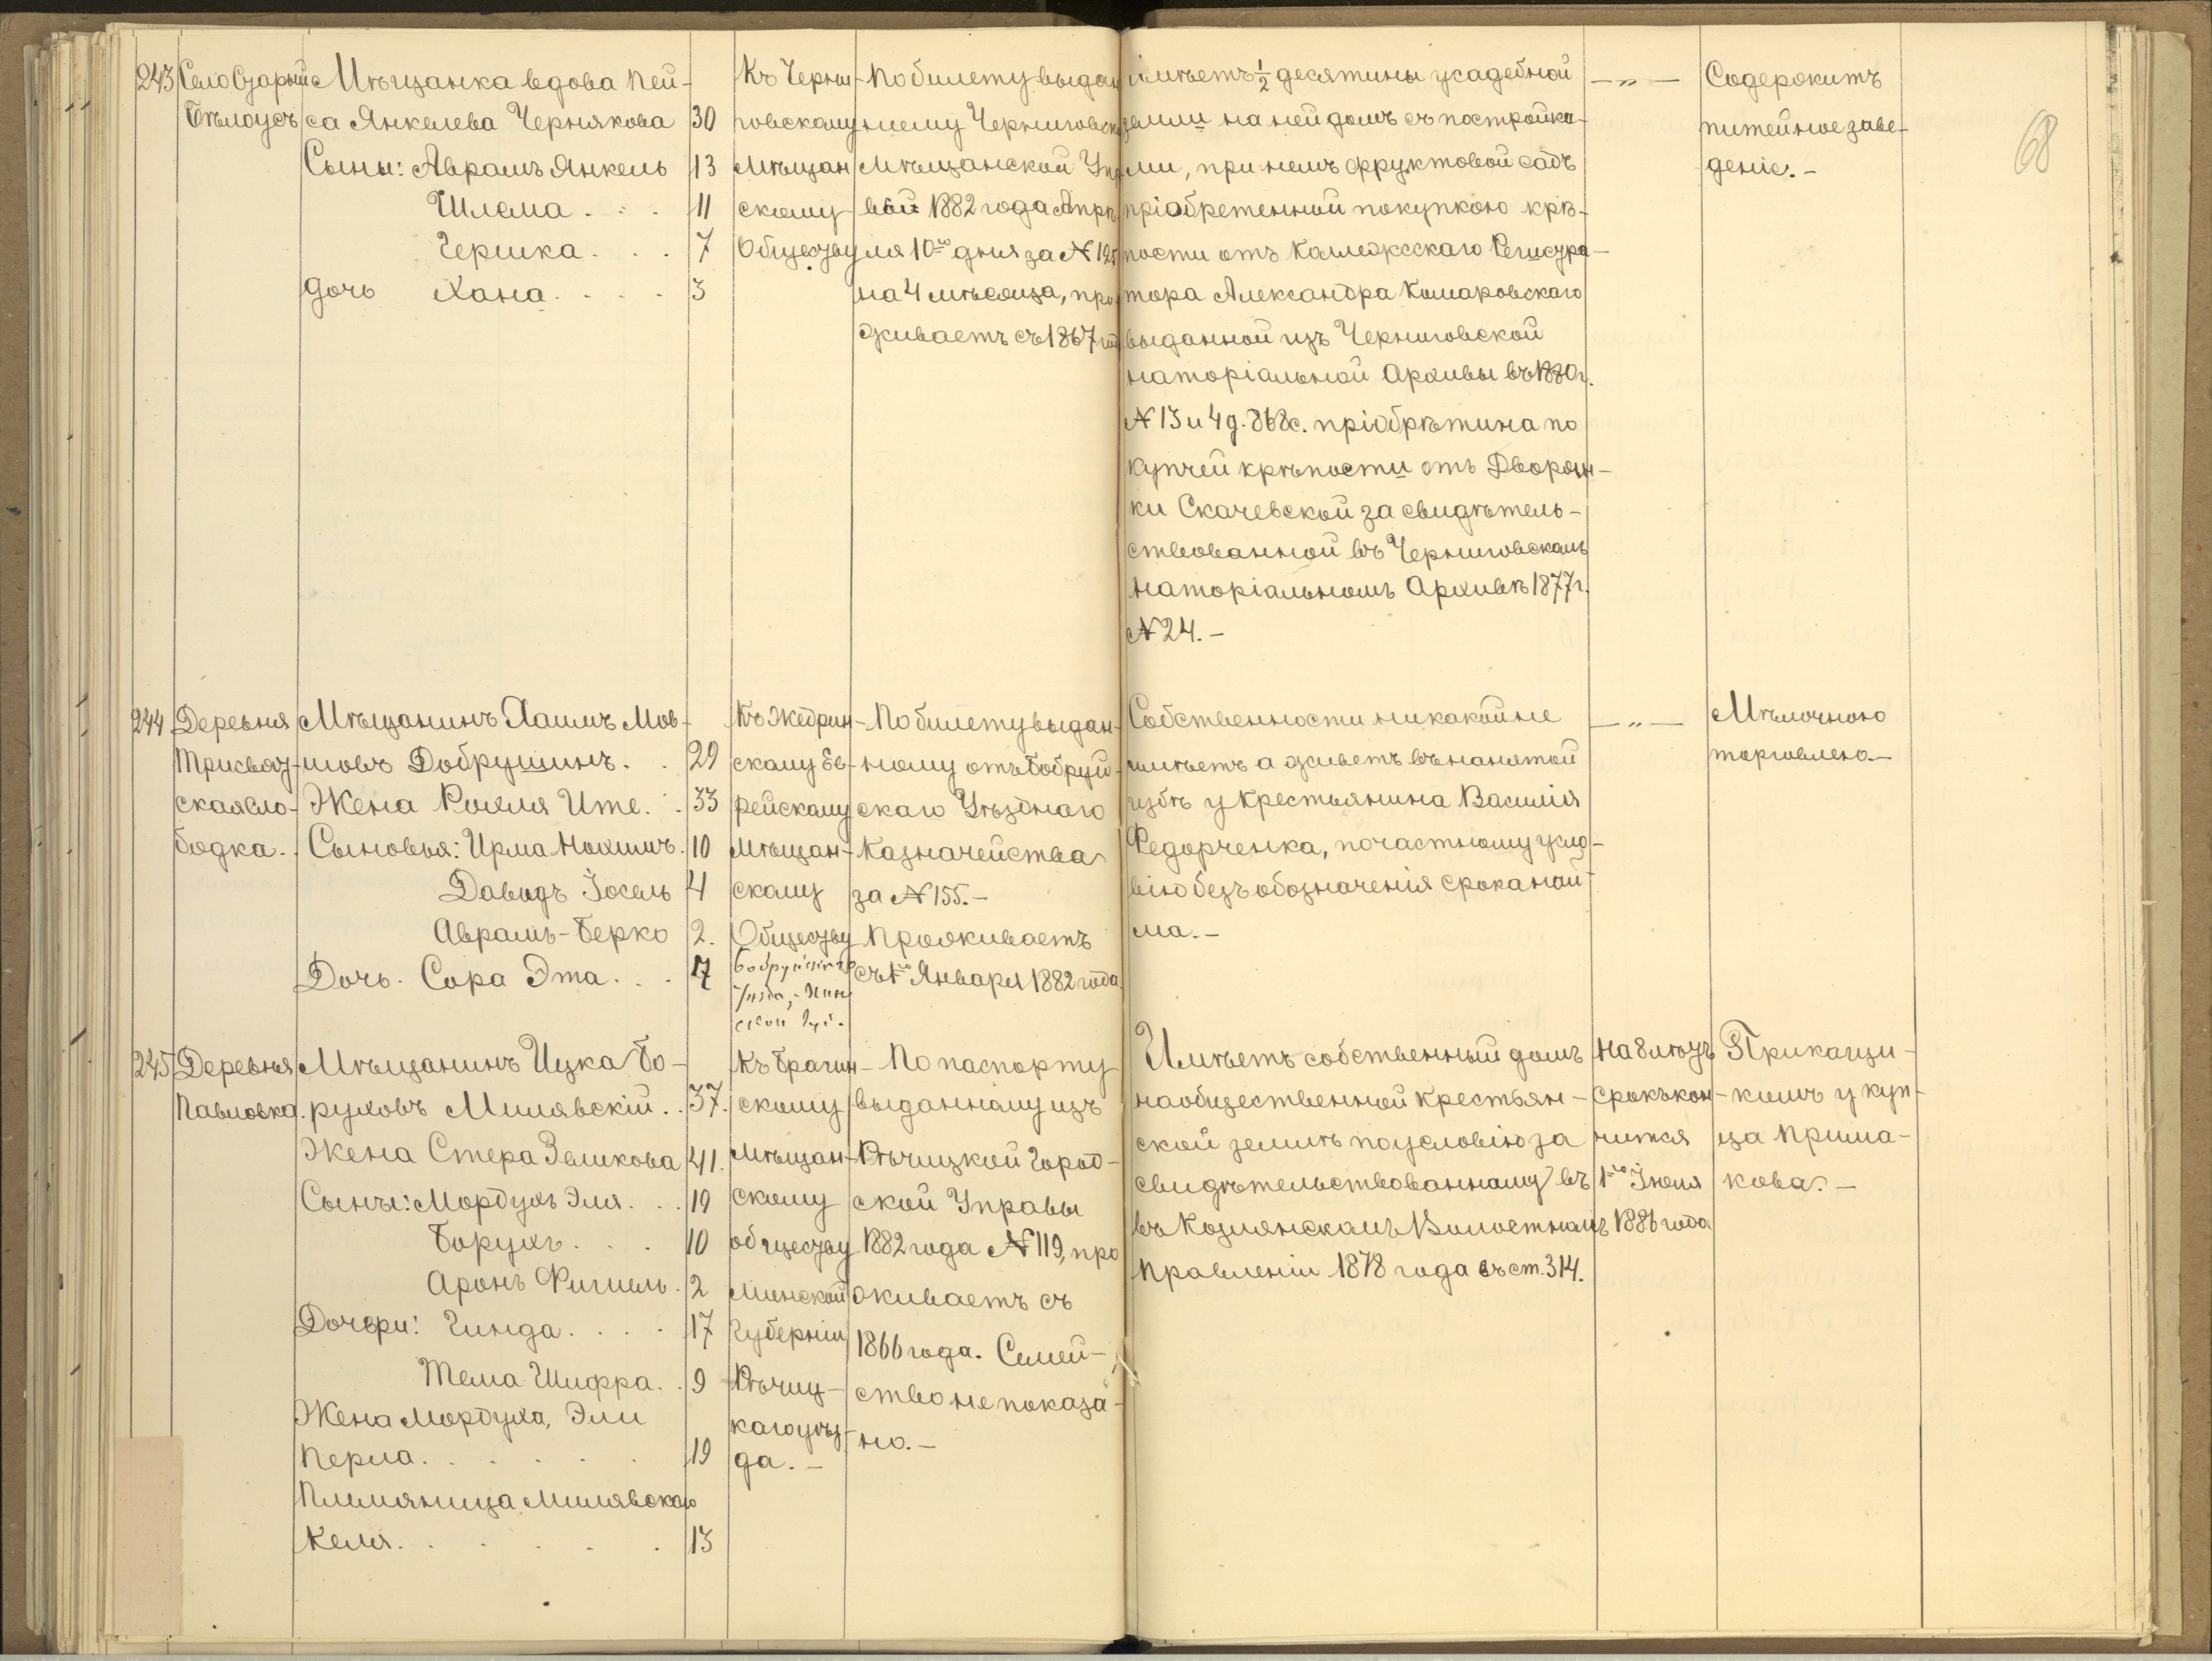 68
243
Село Старый
Бѣлоусъ
Мѣщанка вдова Пей-
са Янкелева Чернякова 30
Сыны: Абрамъ Янкель 13
Шлема . . . 11
Гершка . . . 7
Дочь Хана . . . . 3
Къ Черни-
говскому
Мѣщан
скому
Обществу
По билету выдан
ному Черниговск
Мѣщанской Упр
вой 1882 года Апрѣ
ля 10го дня за № 125
на 4 мѣсяца, про
живаетъ съ 1867 год
Имѣетъ ½ десятины усадебной
земли на ней домъ съ постройка-
ми, при немъ фруктовой садъ
пріобретенной покупкою крѣ-
пости отъ Коллежскаго Регистра-
тора Александра Комаровскаго
выданной изъ Черниговской
наторіальной Архивы въ 1880 г.
№ 13 и 4 д. 868 с. пріобрѣтина по
купчей крѣпости отъ Дворян-
ки Скачевской засвидѣтель-
ствованной въ Черниговскомъ
Наторіальномъ Архивѣ 1877 г.
№ 24. –
— „ —
Содержитъ
питейное заве-
деніе. –
244
Деревня
Трисвят-
ская сло-
бодка.
Мѣщанинъ Хаимъ Мов-
шовъ Добрушинъ. . 29
Жена Рохля Ите. . 33
Сыновья: Ирма Нохимъ. 10
Давидъ Іосель 4
Абрамъ-Берко 2.
Дочь. Сора Эта. . . 7
Къ Жедрин-
скому Ев-
рейскому
Мѣщан-
скому
Обществу
Бобруйскаго
Уѣзда, Мин
ской Губ.
По билету выдан-
ному отъ Бобруй-
скаго Уѣзднаго
Казначейства
за № 155. –
Проживаетъ
съ 1го Января 1882 года
Собственности никакой не
имѣетъ а живетъ въ нанятой
избѣ у Крестьянина Василія
Федорченка, по частному усло-
вію безъ обозначенія срока най-
ма. –
— „ —
Мѣлочною
торговлею –
245
Деревня
Павловка.
Мѣщанинъ Ицка Бо-
руховъ Милявскій. . 37.
Жена Стера Зеликова 41.
Сыны: Мордухъ Эля. . . 19
Борухъ. . . . 10
Аронъ Фишель. 2
Дочери: Гинда. . . . 17
Тема Шифра. . 9
Жена Мордуха, Эли
Перла. . . . . . 19
Племяница Милявскаго
Келя. . . . . . 13
Къ Брагин-
скому
Мѣщан-
скому
обществу
Минской
Губерніи
Рѣчиц-
каго уѣз-
да. –
По паспорту
выданному изъ
Рѣчицкой Город-
ской Управы
1882 года № 119, про
живаетъ съ
1866 года. Семей-
ство не показа-
но. –
Имѣетъ собственный домъ
на общественной Крестьян-
ской землѣ по условію за
свидѣтельствованному въ
въ Козлянскомъ Волостномъ
Правленіи 1878 года въ ст. 314.
На 8 лѣтъ
срокъ кон-
чится
1го Іюля
1886 года
Прикащи-
комъ у куп-
ца Прима-
кова. –